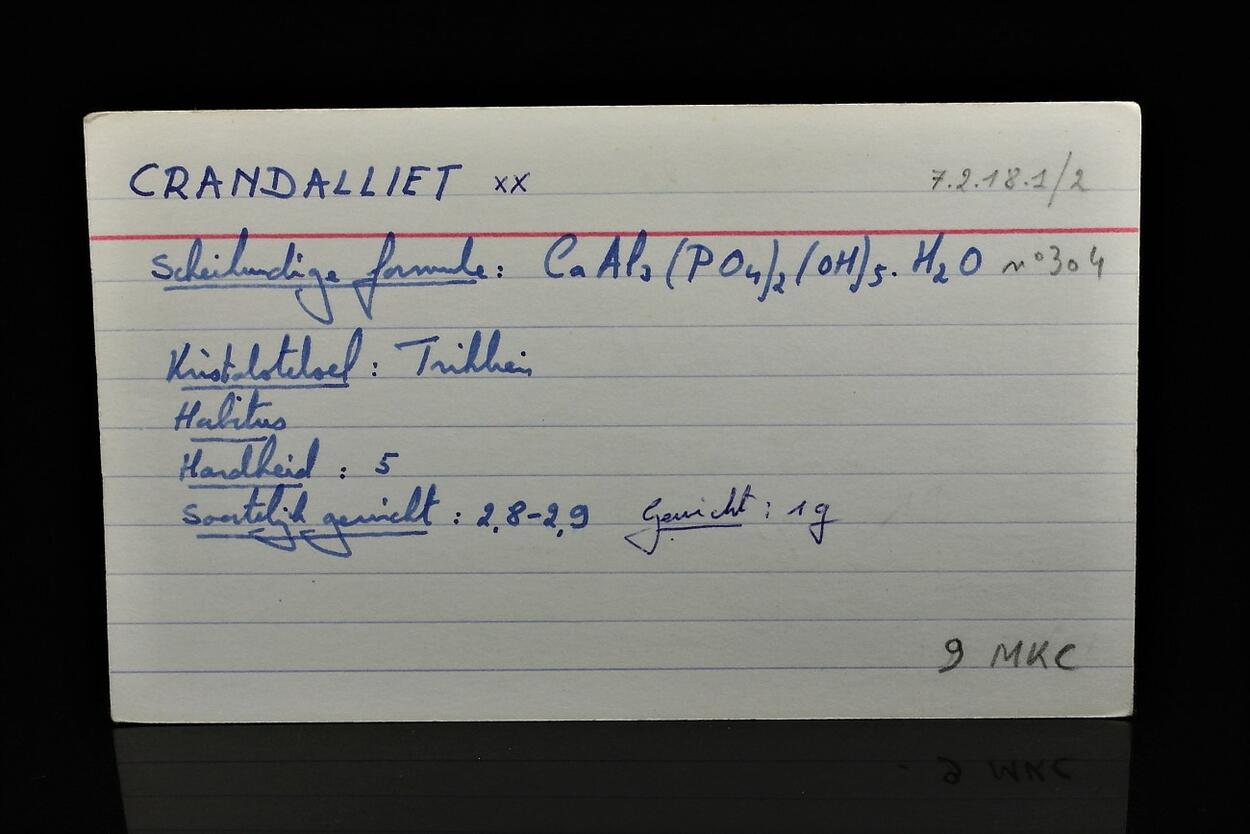 CRANDALLIET xx 7.2.18.1/2
Scheikundige formule: CaAl₃(PO₄)₂(OH)₅.H₂O n°304
Kristalstelsel : Triklien
Habitus
Hardheid : 5
Soortelijk gewicht : 2,8-2,9 Gewicht : 1g
9 MKC